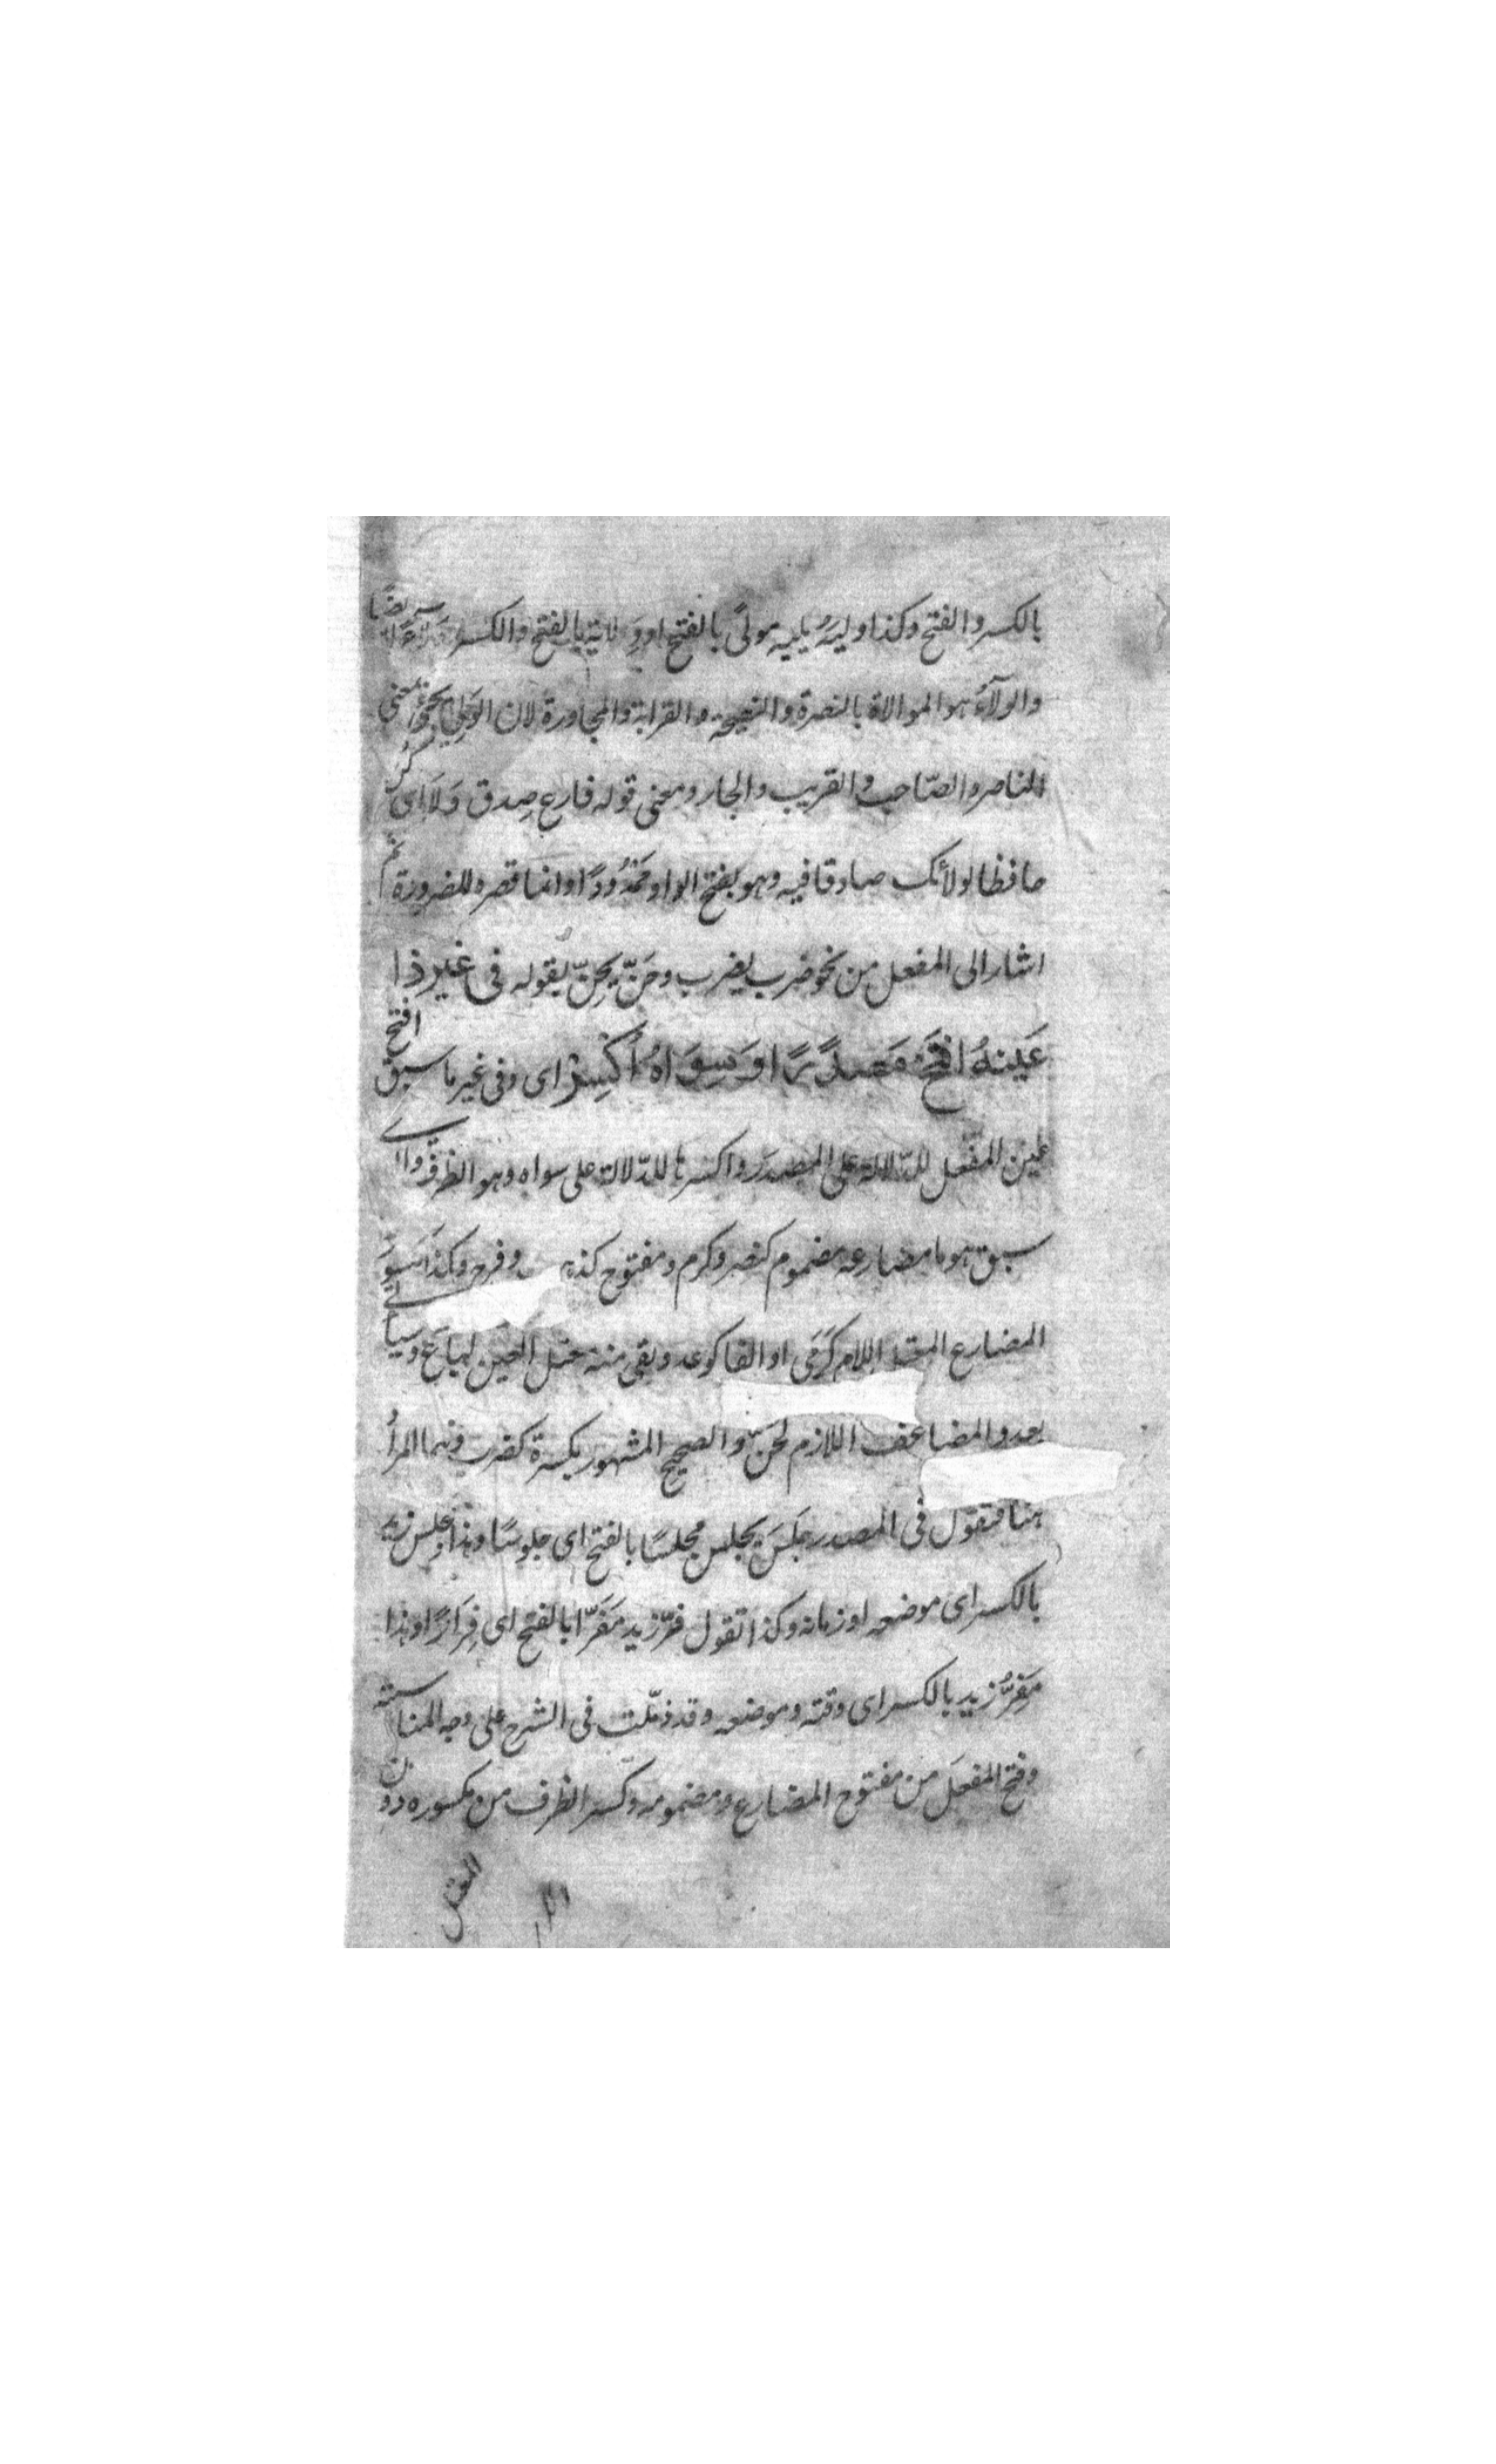 بالكسر والفتح وكذا وليه يليه مولًى بالفتح او ولاية بالفتح والكسر ايضًا
والولآءُ هو الموالاة بالنصرة والنصيحة والقرابة والمجاورة لان الولي يجئ بمعنى
الناصر والصّاحب والقريب والجار ومعنى قوله فارع صِدق وَلَا اى كن
حافظا لولائك صادقا فيه وهو بفتح الواو ممْدُودًا وانما قصره للضرورة ثم
اشار الى المفعل من نحو ضرب يضرب وحَنّ يحِنّ بقوله فى غير ذا
عَينهُ افتَحْ مَصدَرًا وَسِوَاهُ اُكْسِرْ اى وفى غير ما سبق افتح
عين المفعل للدّلالة على المصدر واكسرها للدّلالة على سواه وهو الظرف
سبق هو ما مضارعه مضموم كنصر وكرم ومفتوح وفرح وكذا
المضارع اللام كَرَمَى او الفا كوعد وبقى منه معتل العين كباع وسياتى
بعد والمضاعف اللازم كحنّ والصحيح المشهور بكسرة كضرب وهما المرادُ
هنا فتقول فى المصدر جَلَسَ يجلس مجلسًا بالفتح اى جلوسًا وهذا مجلِس زيد
بالكسر اى موضعه او زمانه وكذا تقول فرّ زيد مَفَرّا بالفتح اى فِرَارًا وهذا
مَفِرُّ زيد بالكسر اى وقته وموضعه وقد ذيّلت فى الشرح على وجه المناسبة
وفتح المفعَل من مفتوح المضارع ومضمومه وكسر الظرف من مكسوره دون